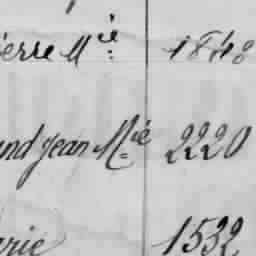 ierre M.ié 1848
and Jean M.ié 2220
arie 1532